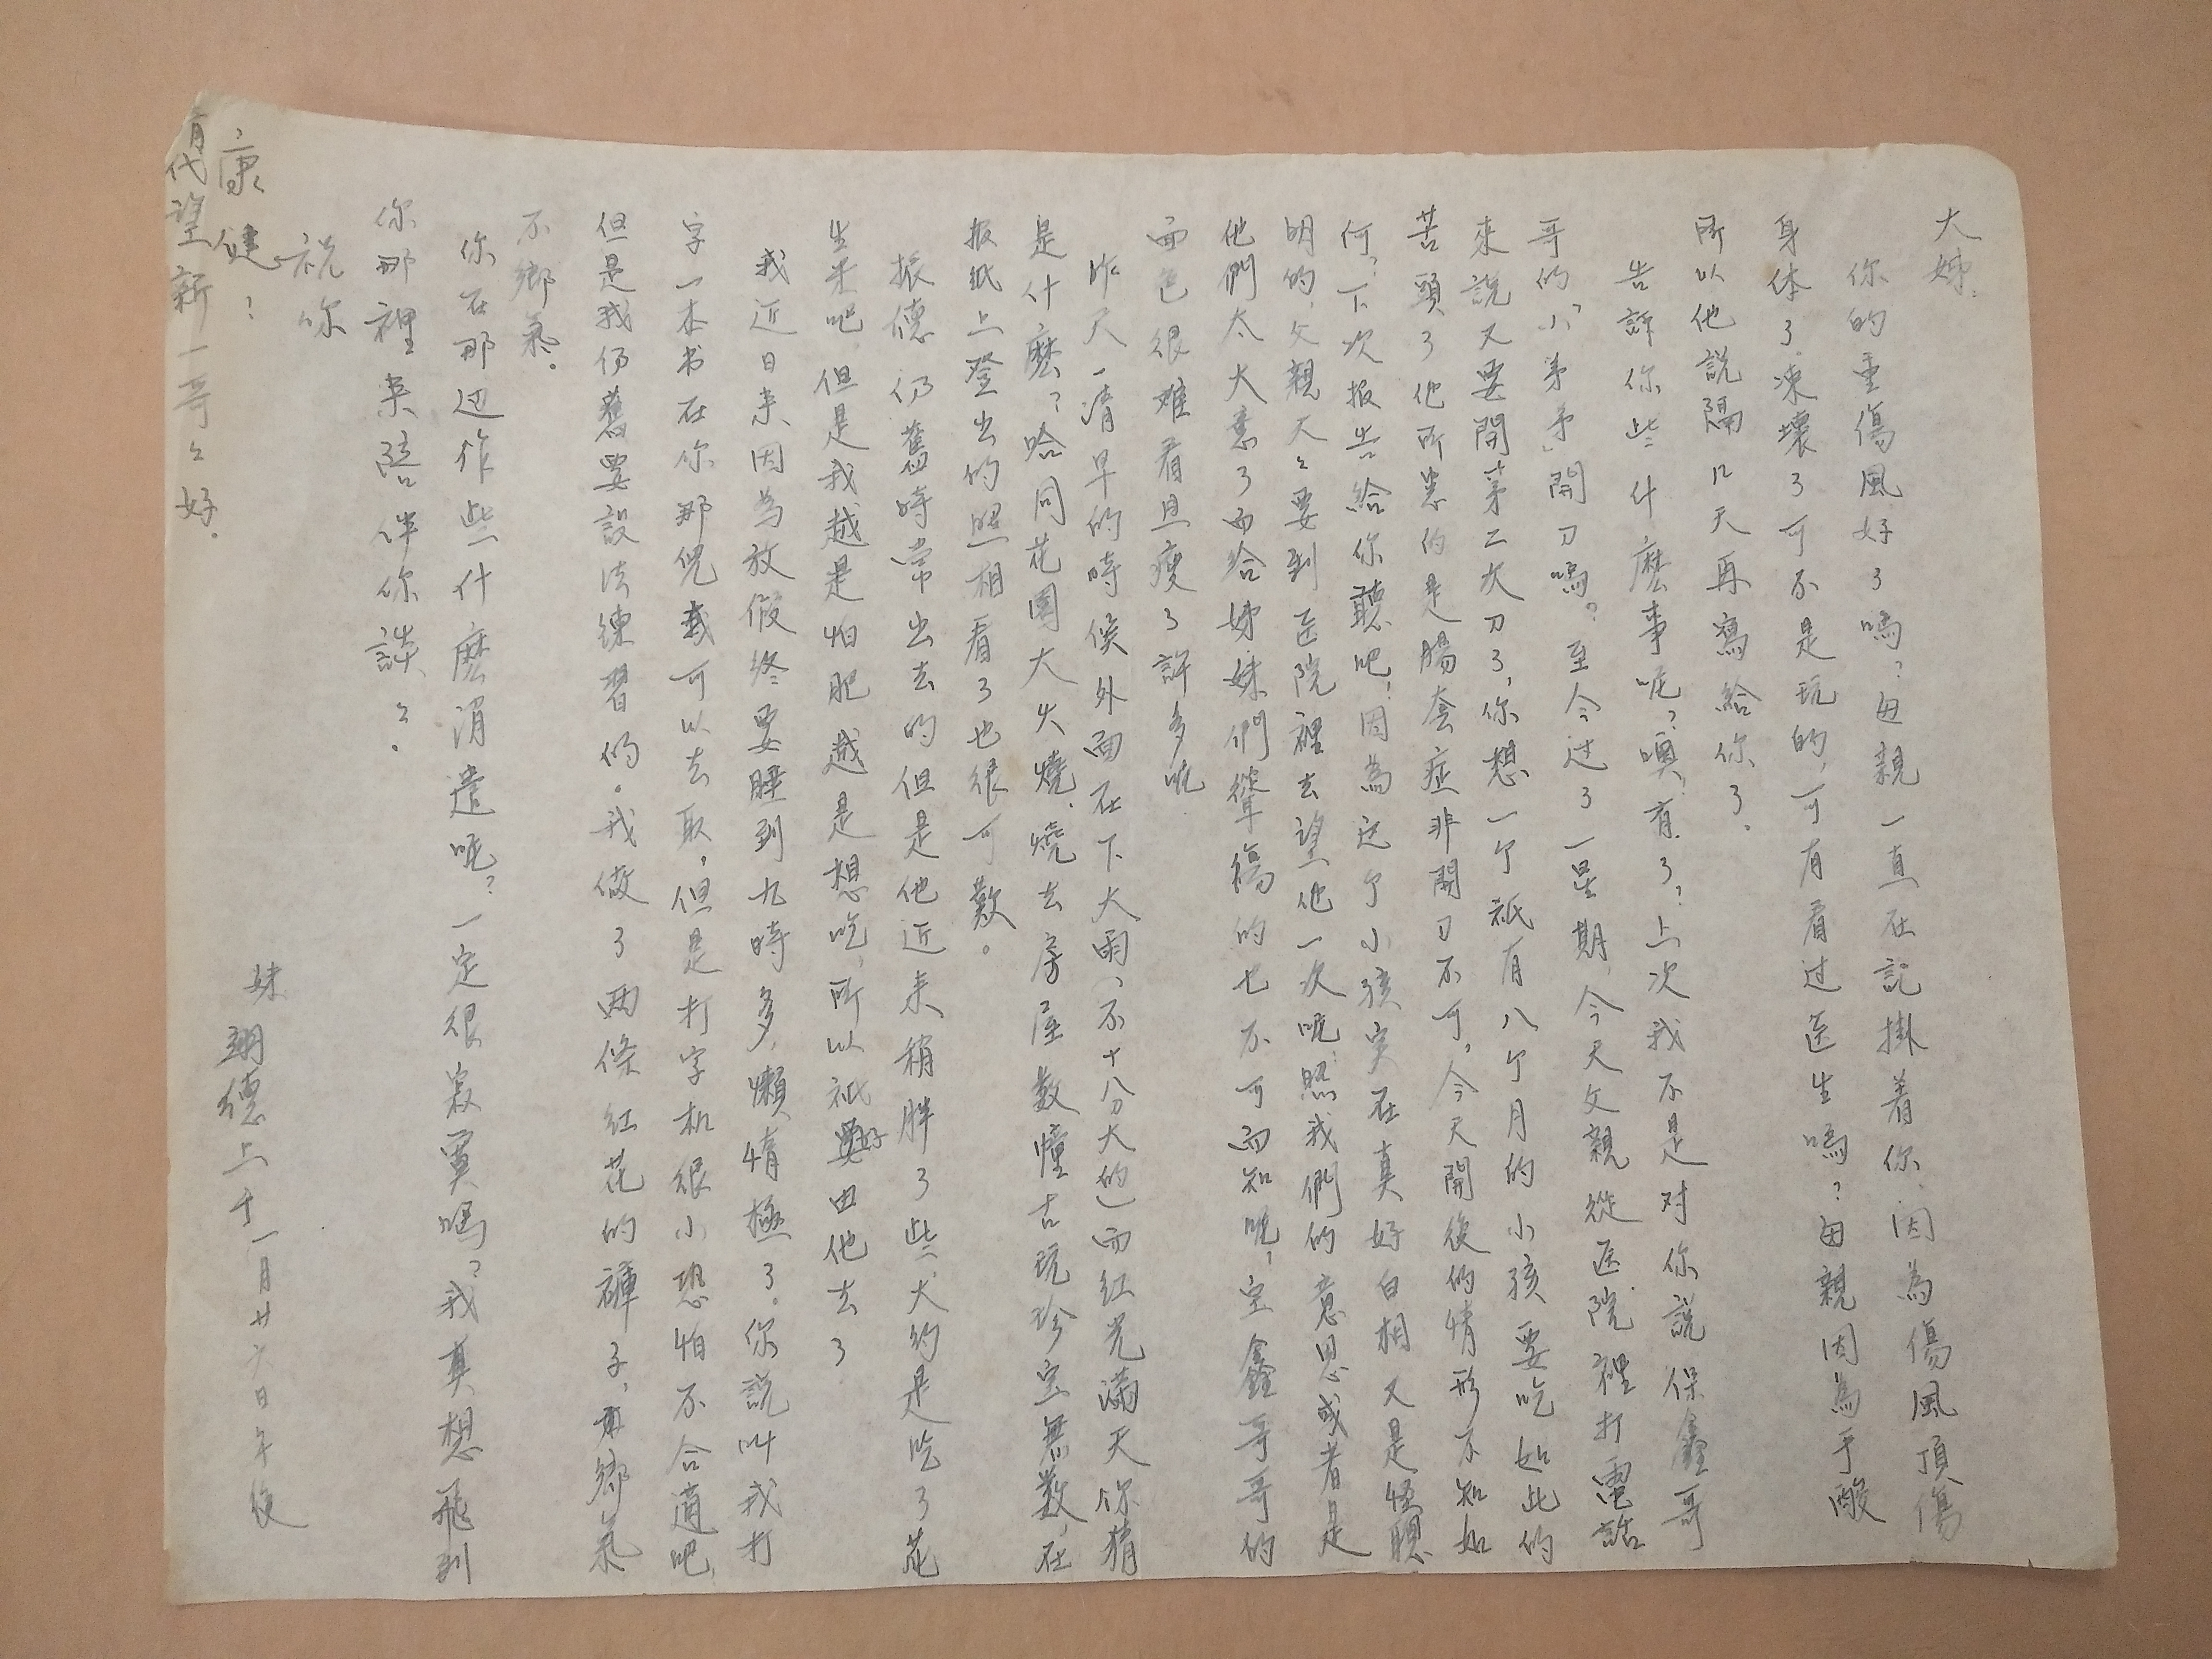 大姊：
你的重傷風好了嗎？母親一直在記掛着你，因為傷風頂傷
身体了，凍壞了可不是玩的，可有看过医生嗎？母親因為手酸
所以他說隔几天再寫給你了。
告訴你些什麽事呢？噢，有了？上次我不是对你說保鑫哥
哥的“小弟弟”開刀嗎？至今过了一星期，今天父親從医院裡打電話
來說又要開第二次刀了，你想一个祇有八个月的小孩要吃如此的
苦頭了他所害的是腸套症非開刀不可，今天開後的情形不知如
何？下次报告給你聽吧！因為这个小孩实在真好白相又是怪聰
明的，父親天〻要到医院裡去望他一次呢！照我們的意思或者是
他們太大意了而給姊妹們弄傷的也不可而知呢！宝鑫哥哥的
面色很难看且瘦了許多呢
昨天清早的時候外面在下大雨、（不十分大的）而红光滿天你猜
是什麽？哈同花園大火燒，燒去房屋数幢古玩珍宝無数，在
报紙上登出的照相看了也很可歎。
振德仍舊時常出去的但是他近来稍胖了些，大約是吃了花
生米吧，但是我越是怕肥越是想吃，所以祇好由他去了
我近日来因為放假終要睡到九時多，懶惰極了。你說叫我打
字一本书在你那兒我可以去取，但是打字机很小恐怕不合適吧，
但是我仍舊要設法練習的。我做了两條红花的褲子，真鄉氣
不鄉氣。
你在那边作些什麽消遣呢？一定很寂寞嗎？我真想飛到
你那裡来陪伴你談〻。
祝你
康健！
妹 翊德上 十一月廿六日午後
代望新一哥〻好。